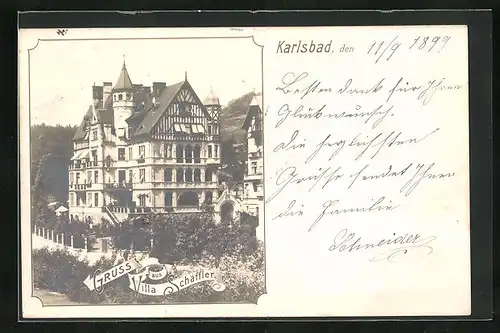 Karlsbad, den 11/9 1899
Besten Dank für Ihren
Glückwunsch.
Die herzlichsten
Grüße sendet Ihnen
die Familie
Schneider
GRUSS aus Villa Schäffler.